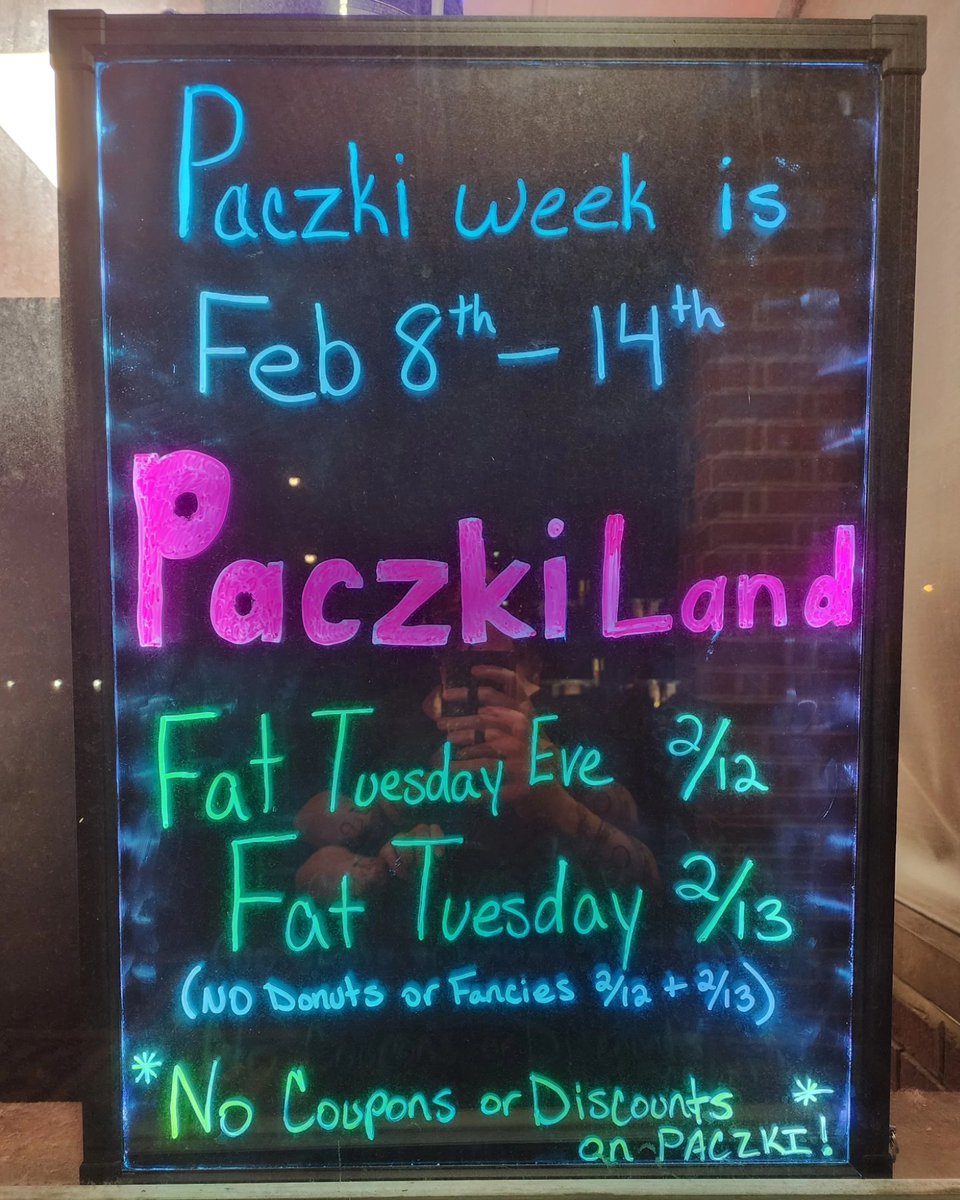 Paczki week is
Feb 8th - 14th
Paczki Land
Fat Tuesday Eve 2/12
Fat Tuesday 2/13
(NO Donuts or Fancies 2/12 + 2/13)
*No Coupons or Discounts *
on PACZKI!